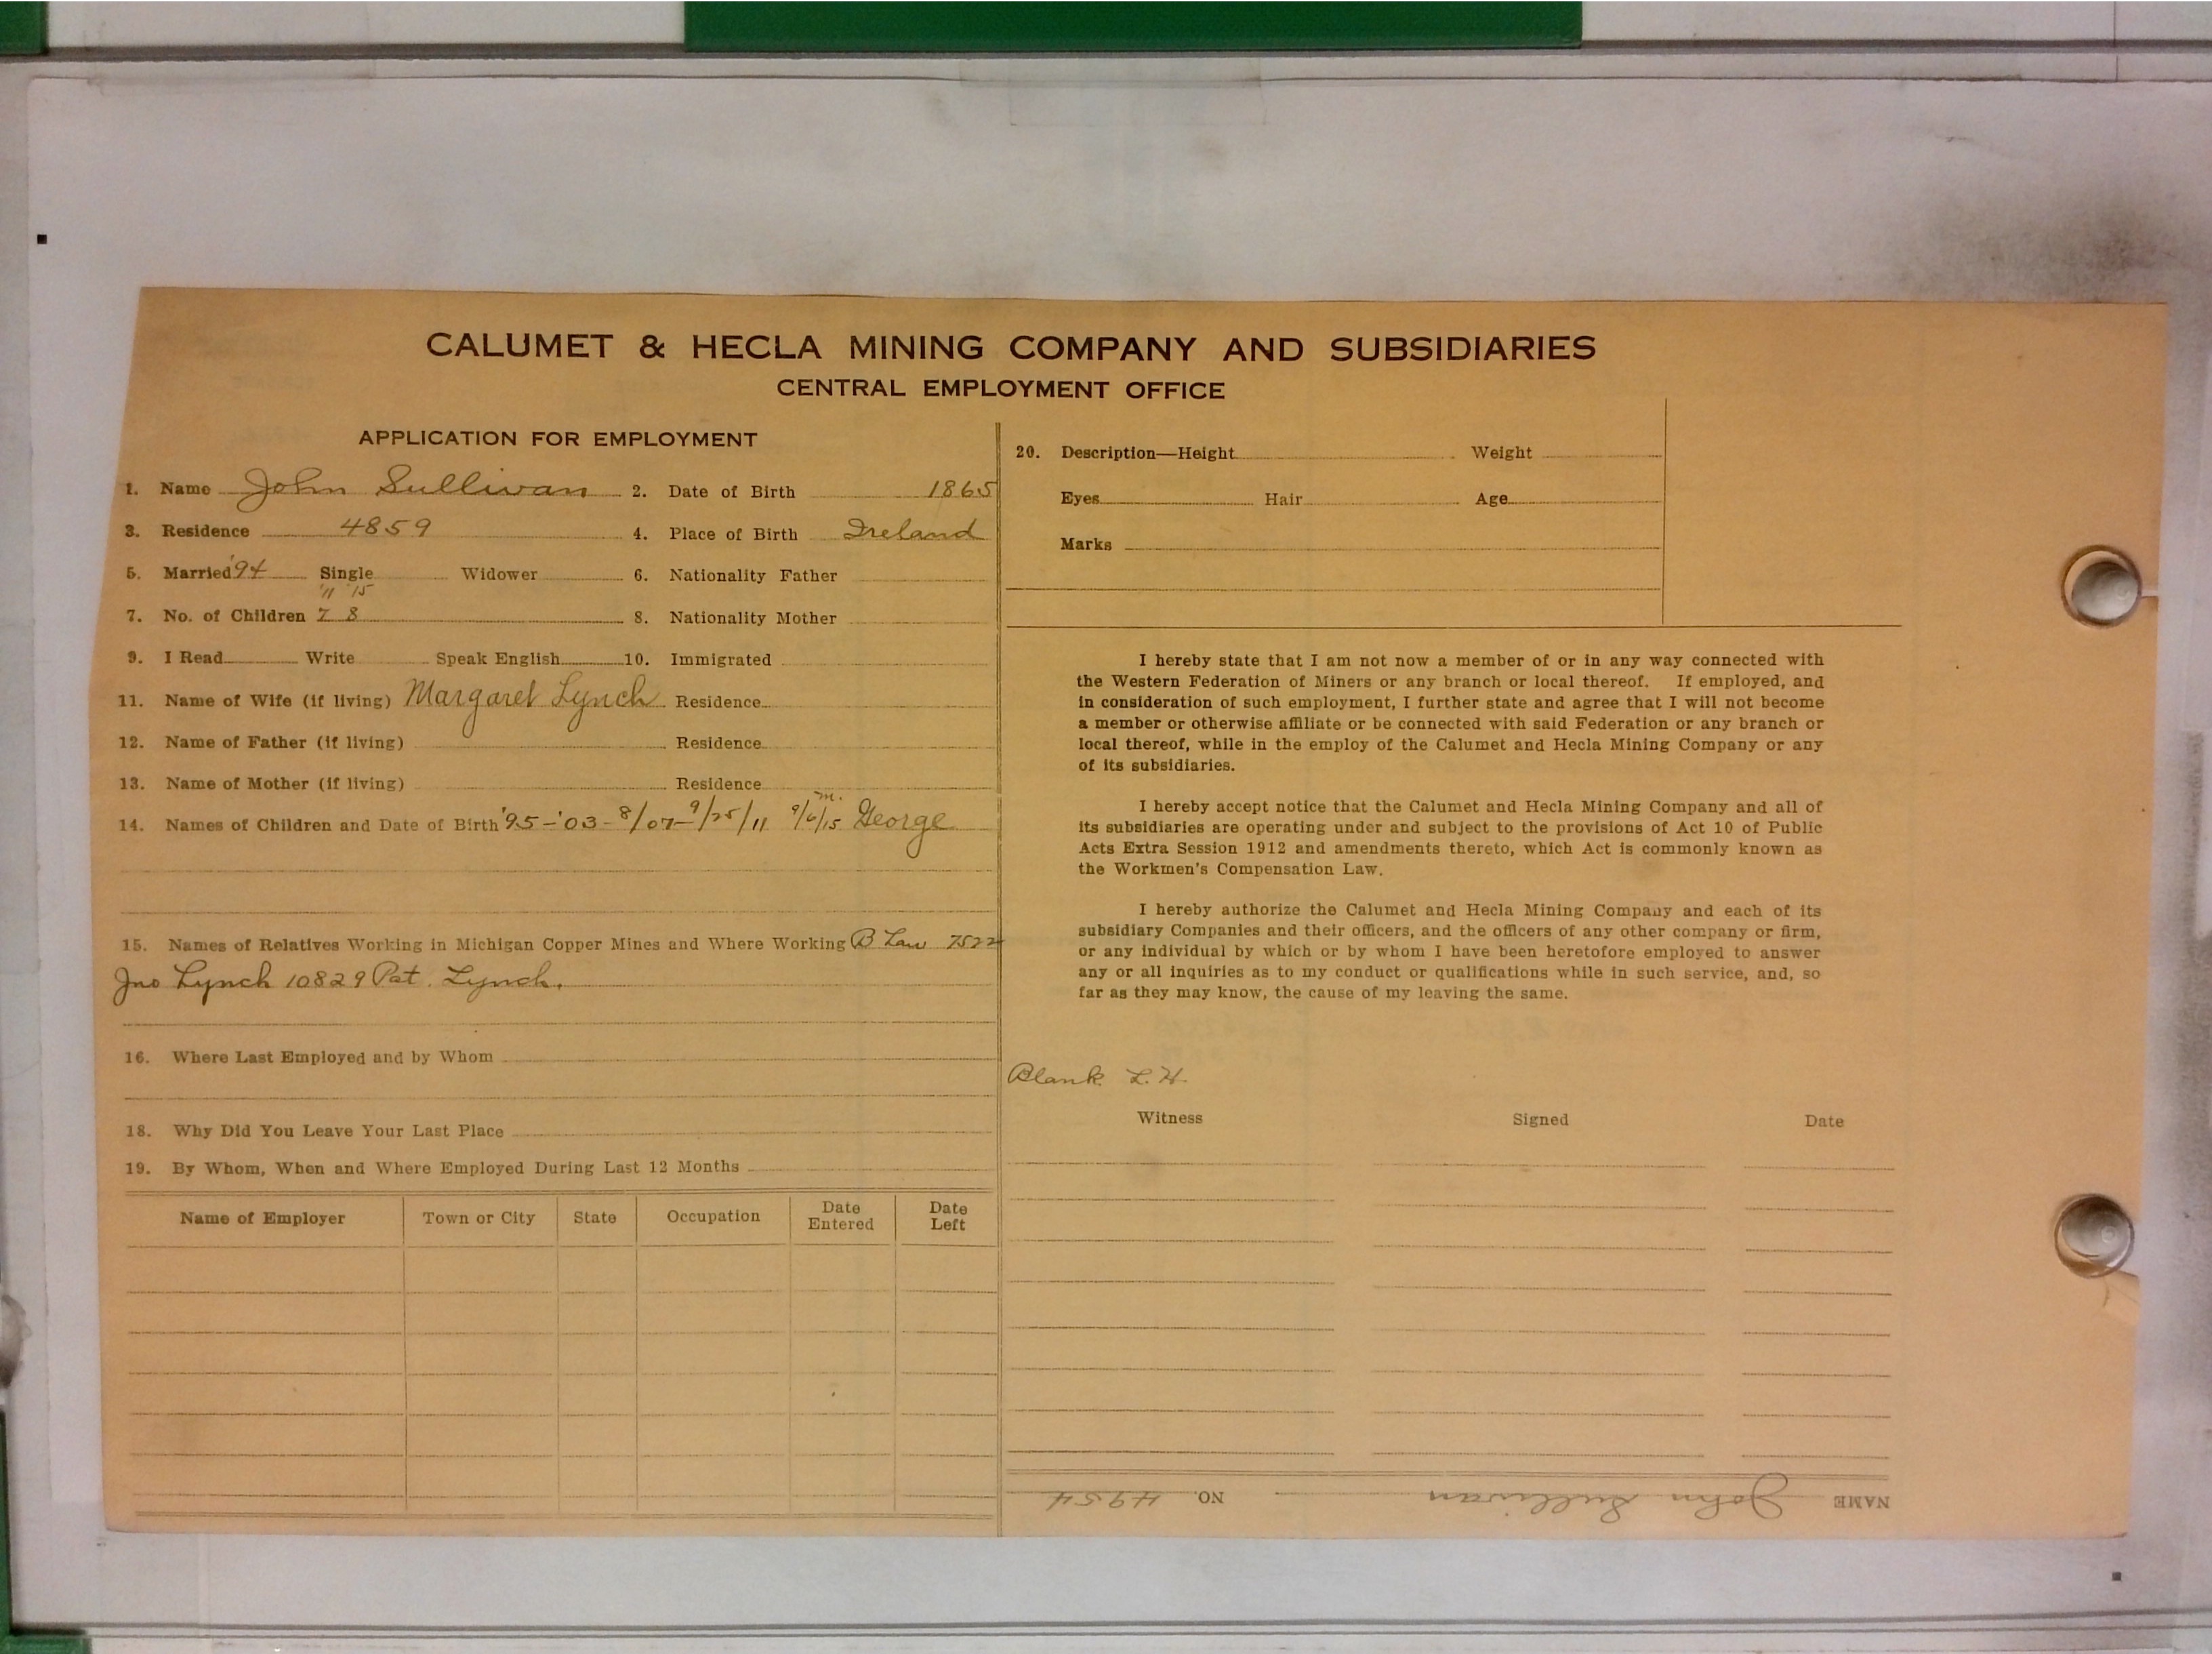 CALUMET & HECLA MINING COMPANY AND SUBSIDIARIES
CENTRAL EMPLOYMENT OFFICE
APPLICATION FOR EMPLOYMENT
1. Name John Sullivan 2. Date of Birth 1865
3. Residence 4859 4. Place of Birth Ireland
5. Married '94 Single Widower 6. Nationality Father
'11 '15
7. No. of Children 7 8 8. Nationality Mother
9. I Read Write Speak English 10. Immigrated
11. Name of Wife (if living) Margaret Lynch Residence
12. Name of Father (if living) Residence
13. Name of Mother (if living) Residence
m.
14. Names of Children and Date of Birth '95-'03-8/07-9/25/11 9/6/15 George
15. Names of Relatives Working in Michigan Copper Mines and Where Working B Law 7522
Jno Lynch 10829 Pat. Lynch.
16. Where Last Employed and by Whom
18. Why Did You Leave Your Last Place
19. By Whom, When and Where Employed During Last 12 Months
Name of Employer Town or City State Occupation Date Entered Date Left
20. Description—Height Weight
Eyes Hair Age
Marks
I hereby state that I am not now a member of or in any way connected with
the Western Federation of Miners or any branch or local thereof. If employed, and
in consideration of such employment, I further state and agree that I will not become
a member or otherwise affiliate or be connected with said Federation or any branch or
local thereof, while in the employ of the Calumet and Hecla Mining Company or any
of its subsidiaries.
I hereby accept notice that the Calumet and Hecla Mining Company and all of
its subsidiaries are operating under and subject to the provisions of Act 10 of Public
Acts Extra Session 1912 and amendments thereto, which Act is commonly known as
the Workmen's Compensation Law.
I hereby authorize the Calumet and Hecla Mining Company and each of its
subsidiary Companies and their officers, and the officers of any other company or firm,
or any individual by which or by whom I have been heretofore employed to answer
any or all inquiries as to my conduct or qualifications while in such service, and, so
far as they may know, the cause of my leaving the same.
Blank L.H.
Witness Signed Date
NAME John Sullivan NO. 4954